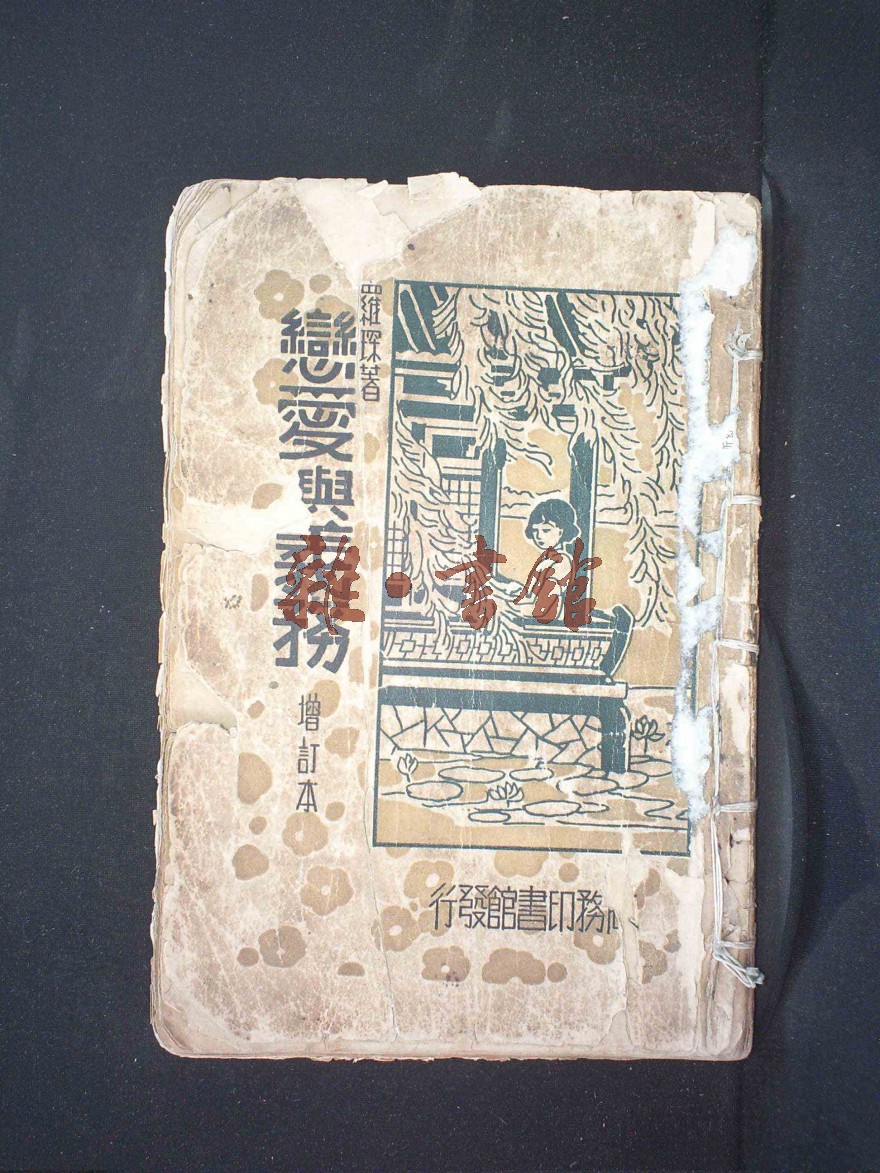 羅琛著
戀愛與義務
增訂本
務印書館發行
雜·書館